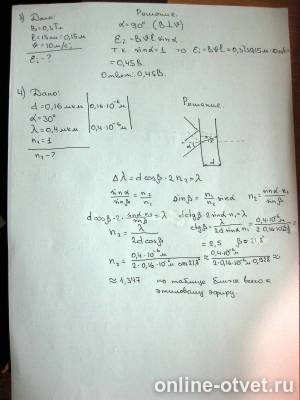 3) Дано:
B=0,3Тл
l=15м=0,15м
v=10м/с
Ei-?
Решение.
α=90° (B⊥v)
Ei=Bvl sinα
т.к. sinα=1 то Ei=Bvl=0,3·10·0,15
=0,45В.
Ответ: 0,45В.
4) Дано:
d=0,16мкм 0,16·10⁻⁶м
α=30°
λ=0,4мкм 0,4·10⁻⁶м
n₁=1
n₂-?
Решение.
Δλ=d cosβ·2n₂=λ
sinα/sinβ=n₂/n₁ sinβ=n₁/n₂ sinα n₂=sinα·n₁/sinβ
d cosβ·2·sinα·n₁/sinβ=λ d ctgβ·2sinα·n₁=λ ctgβ=λ/2d sinα·n₁=0,4·10⁻⁶
n₂=λ/2d cosβ =2,5 β≈21,8°
n₂=0,4·10⁻⁶м/2·0,16·10⁻⁶м cos21,8°≈0,4·10⁻⁶м/2·0,16·10⁻⁶м·0,928≈
≈1,347 по таблице ближе всего к
этиловому эфиру.
online-otvet.ru